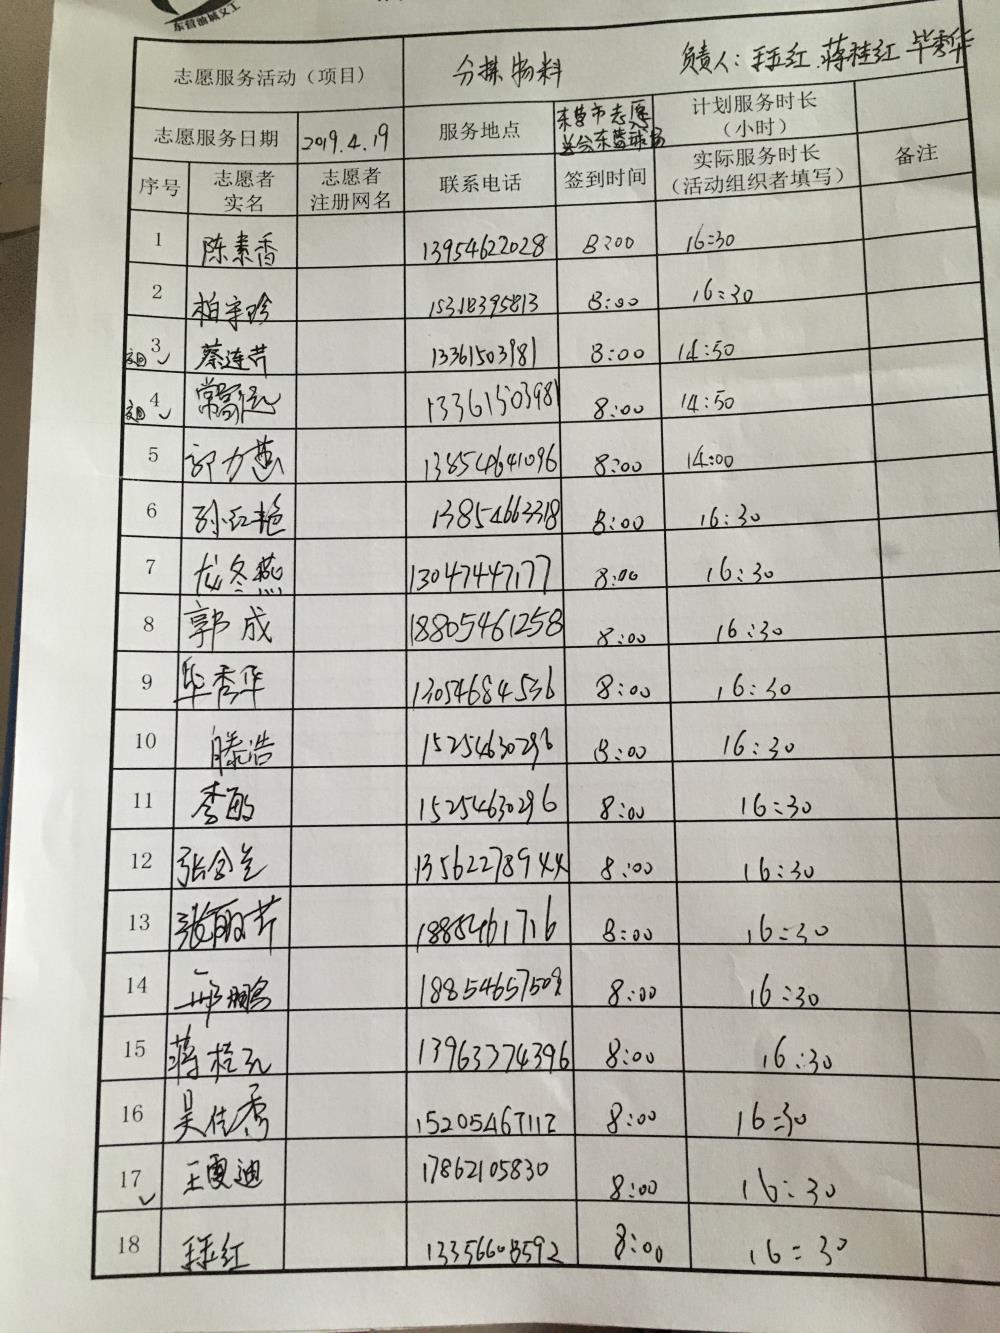 东营油城义工
志愿服务活动（项目） 分拣物料 负责人：王玉红 蒋桂红 毕秀华
志愿服务日期 2019.4.19 服务地点 东营市志愿 计划服务时长（小时）
序号 志愿者实名 志愿者注册网名 联系电话 签到时间 实际服务时长（活动组织者填写） 备注
1 陈素香 13954622028 8:00 16:30
2 15318395813 8:00 16:30
3 蔡连芹 13361503981 8:00 14:50
4 13361503981 8:00 14:50
5 13854641096 8:00 14:00
6 孙红艳 13854663318 8:00 16:30
7 龙冬燕 13047447177 8:00 16:30
8 郭成 18805461258 8:00 16:30
9 毕秀华 13054684536 8:00 16:30
10 滕浩 15254630296 8:00 16:30
11 15254630296 8:00 16:30
12 13562278944 8:00 16:30
13 1885461716 8:00 16:30
14 18854657509 8:00 16:30
15 13963374396 8:00 16:30
16 吴佳秀 15205467112 8:00 16:30
17 王雯迪 17862105830 8:00 16:30
18 王玉红 13356608592 8:00 16:30